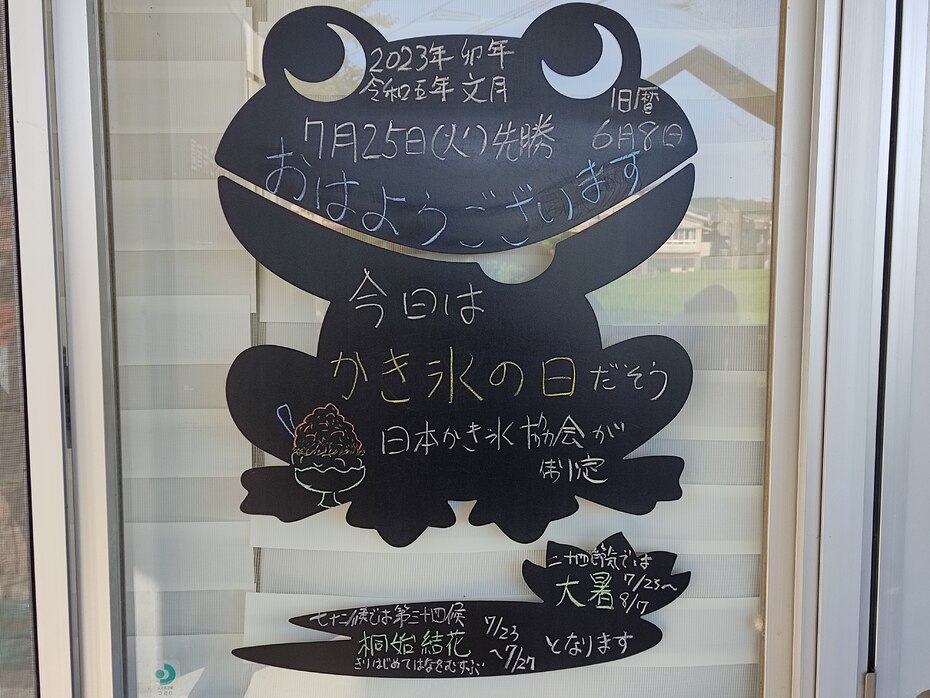 2023年 卯年
令和五年 文月
旧暦
7月25日(火)先勝 6月8日
おはようございます
今日は
かき氷の日だそう
日本かき氷協会が
制定
二十四節気では
大暑 7/23〜
8/7
七十二候では第三十四候
桐始結花 7/23
〜7/27 となります
きりはじめてはなをむすぶ